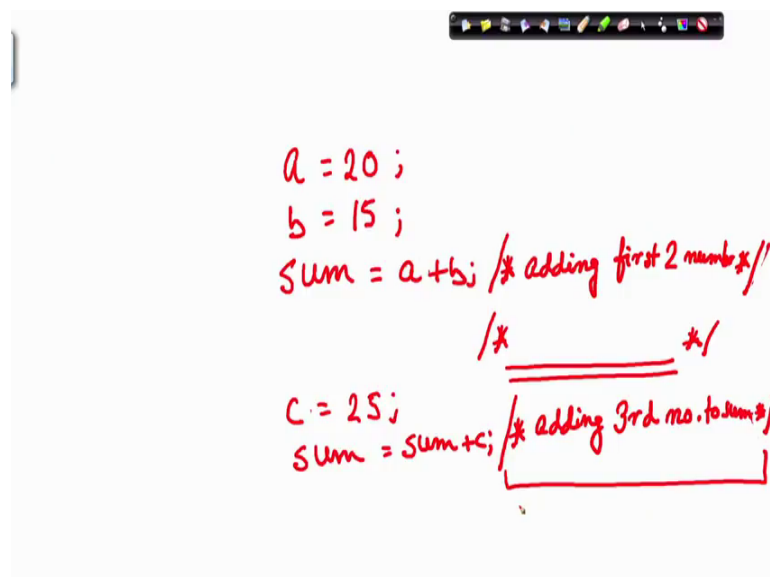 a = 20 ;
b = 15 ;
sum = a + b; /* adding first 2 number */
/* */
c = 25 ;
sum = sum + c; /* adding 3rd no. to sum */